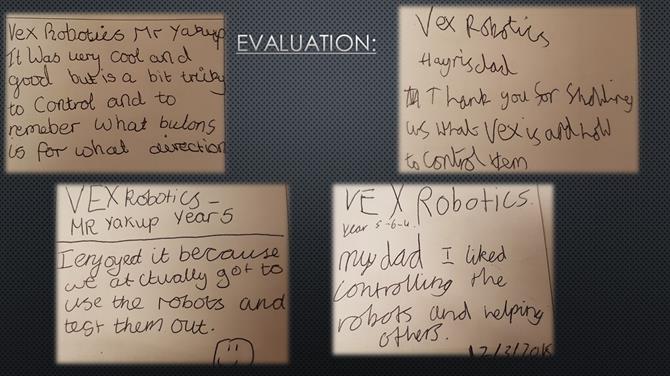 EVALUATION:
Vex Robotics Mr Yakup
It Was very cool and
good but is a bit tricky
to Control and to
remeber what butons
is for what direction
Vex Robotics
Hayris dad
Thank you for Showing
us what Vex is and how
to control them
VEX Robotics –
MR Yakup Year 5
I enjoyed it because
we actually got to
use the robots and
test them out.
VEX Robotics.
Year 5-6-4
my dad I liked
controlling the
robots and helping
others.